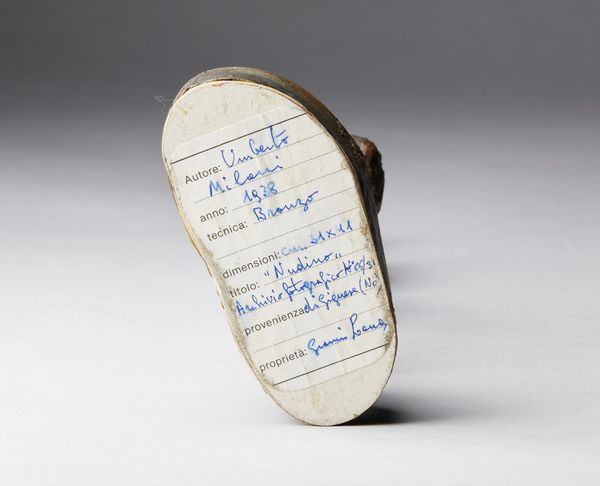 Autore: Umberto
Milani
anno: 1938
tecnica: Bronzo
dimensioni: cm. 31x11
titolo: "Nudino"
Archivio fotografico N° 66/31
provenienza: di Gignese (No)
proprietà: Gianni